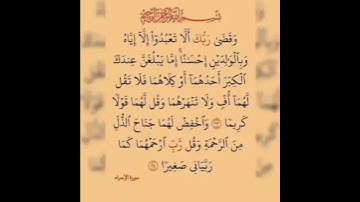 بِسْمِ اللَّهِ الرَّحْمَٰنِ الرَّحِيمِ
وَقَضَىٰ رَبُّكَ أَلَّا تَعْبُدُوٓا۟ إِلَّآ إِيَّاهُ
وَبِٱلْوَٰلِدَيْنِ إِحْسَـٰنًا ۚ إِمَّا يَبْلُغَنَّ عِندَكَ
ٱلْكِبَرَ أَحَدُهُمَآ أَوْ كِلَاهُمَا فَلَا تَقُل
لَّهُمَآ أُفٍّ وَلَا تَنْهَرْهُمَا وَقُل لَّهُمَا قَوْلًا
كَرِيمًا ﴿٢٣﴾ وَٱخْفِضْ لَهُمَا جَنَاحَ ٱلذُّلِّ
مِنَ ٱلرَّحْمَةِ وَقُل رَّبِّ ٱرْحَمْهُمَا كَمَا
رَبَّيَانِى صَغِيرًا ﴿٢٤﴾
سورة الإسراء